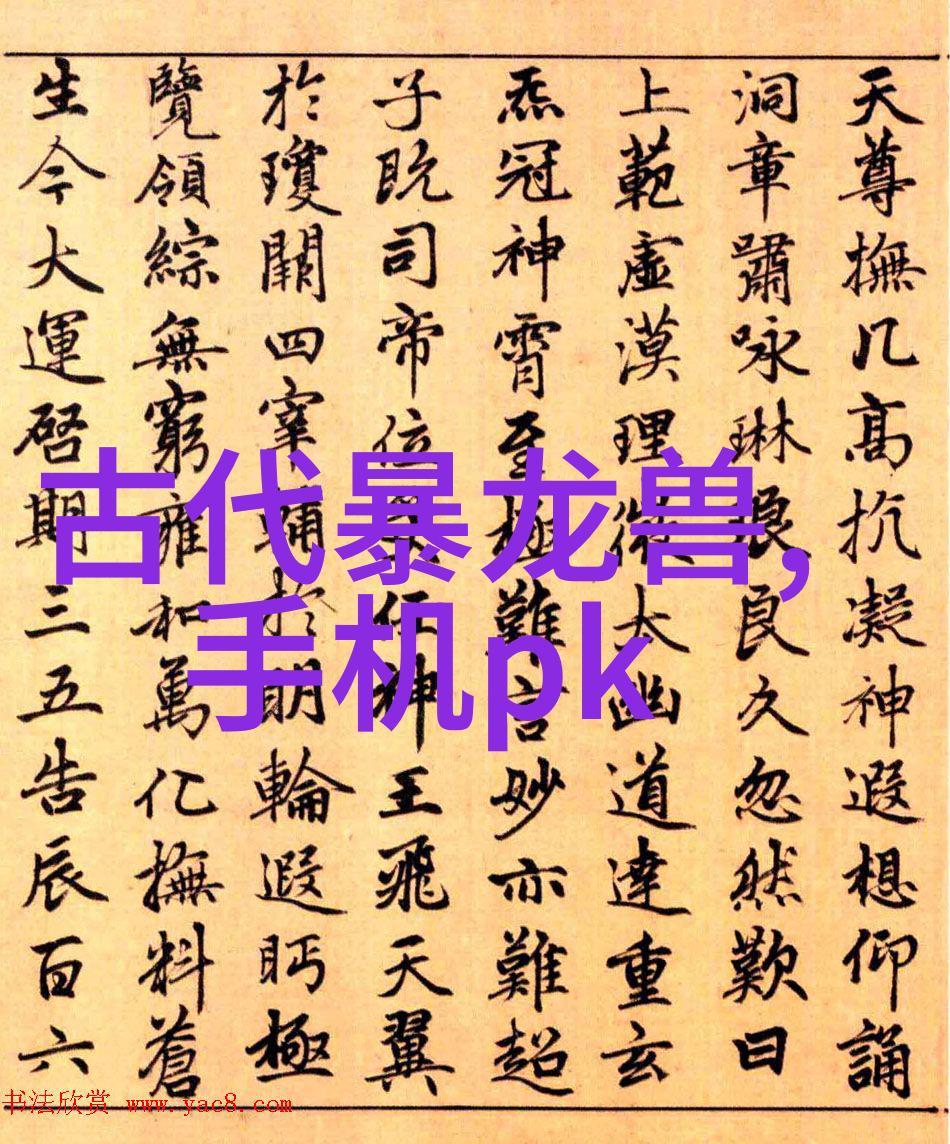 天尊撫几高抗凝神遐想仰誦
洞章嘯咏琳琅良久忽然歎曰
上範虛漠理微太幽道達重玄
炁冠神霄至極難言妙亦難超
子既司帝位任神王飛天翼
於瓊闕四宰輔於明輪遐眄極
覽領綜無窮雍和萬化撫料蒼
生今大運啓期三五告辰百六
古代暴龙兽,
手机pk
书法欣赏 www.yac8.com